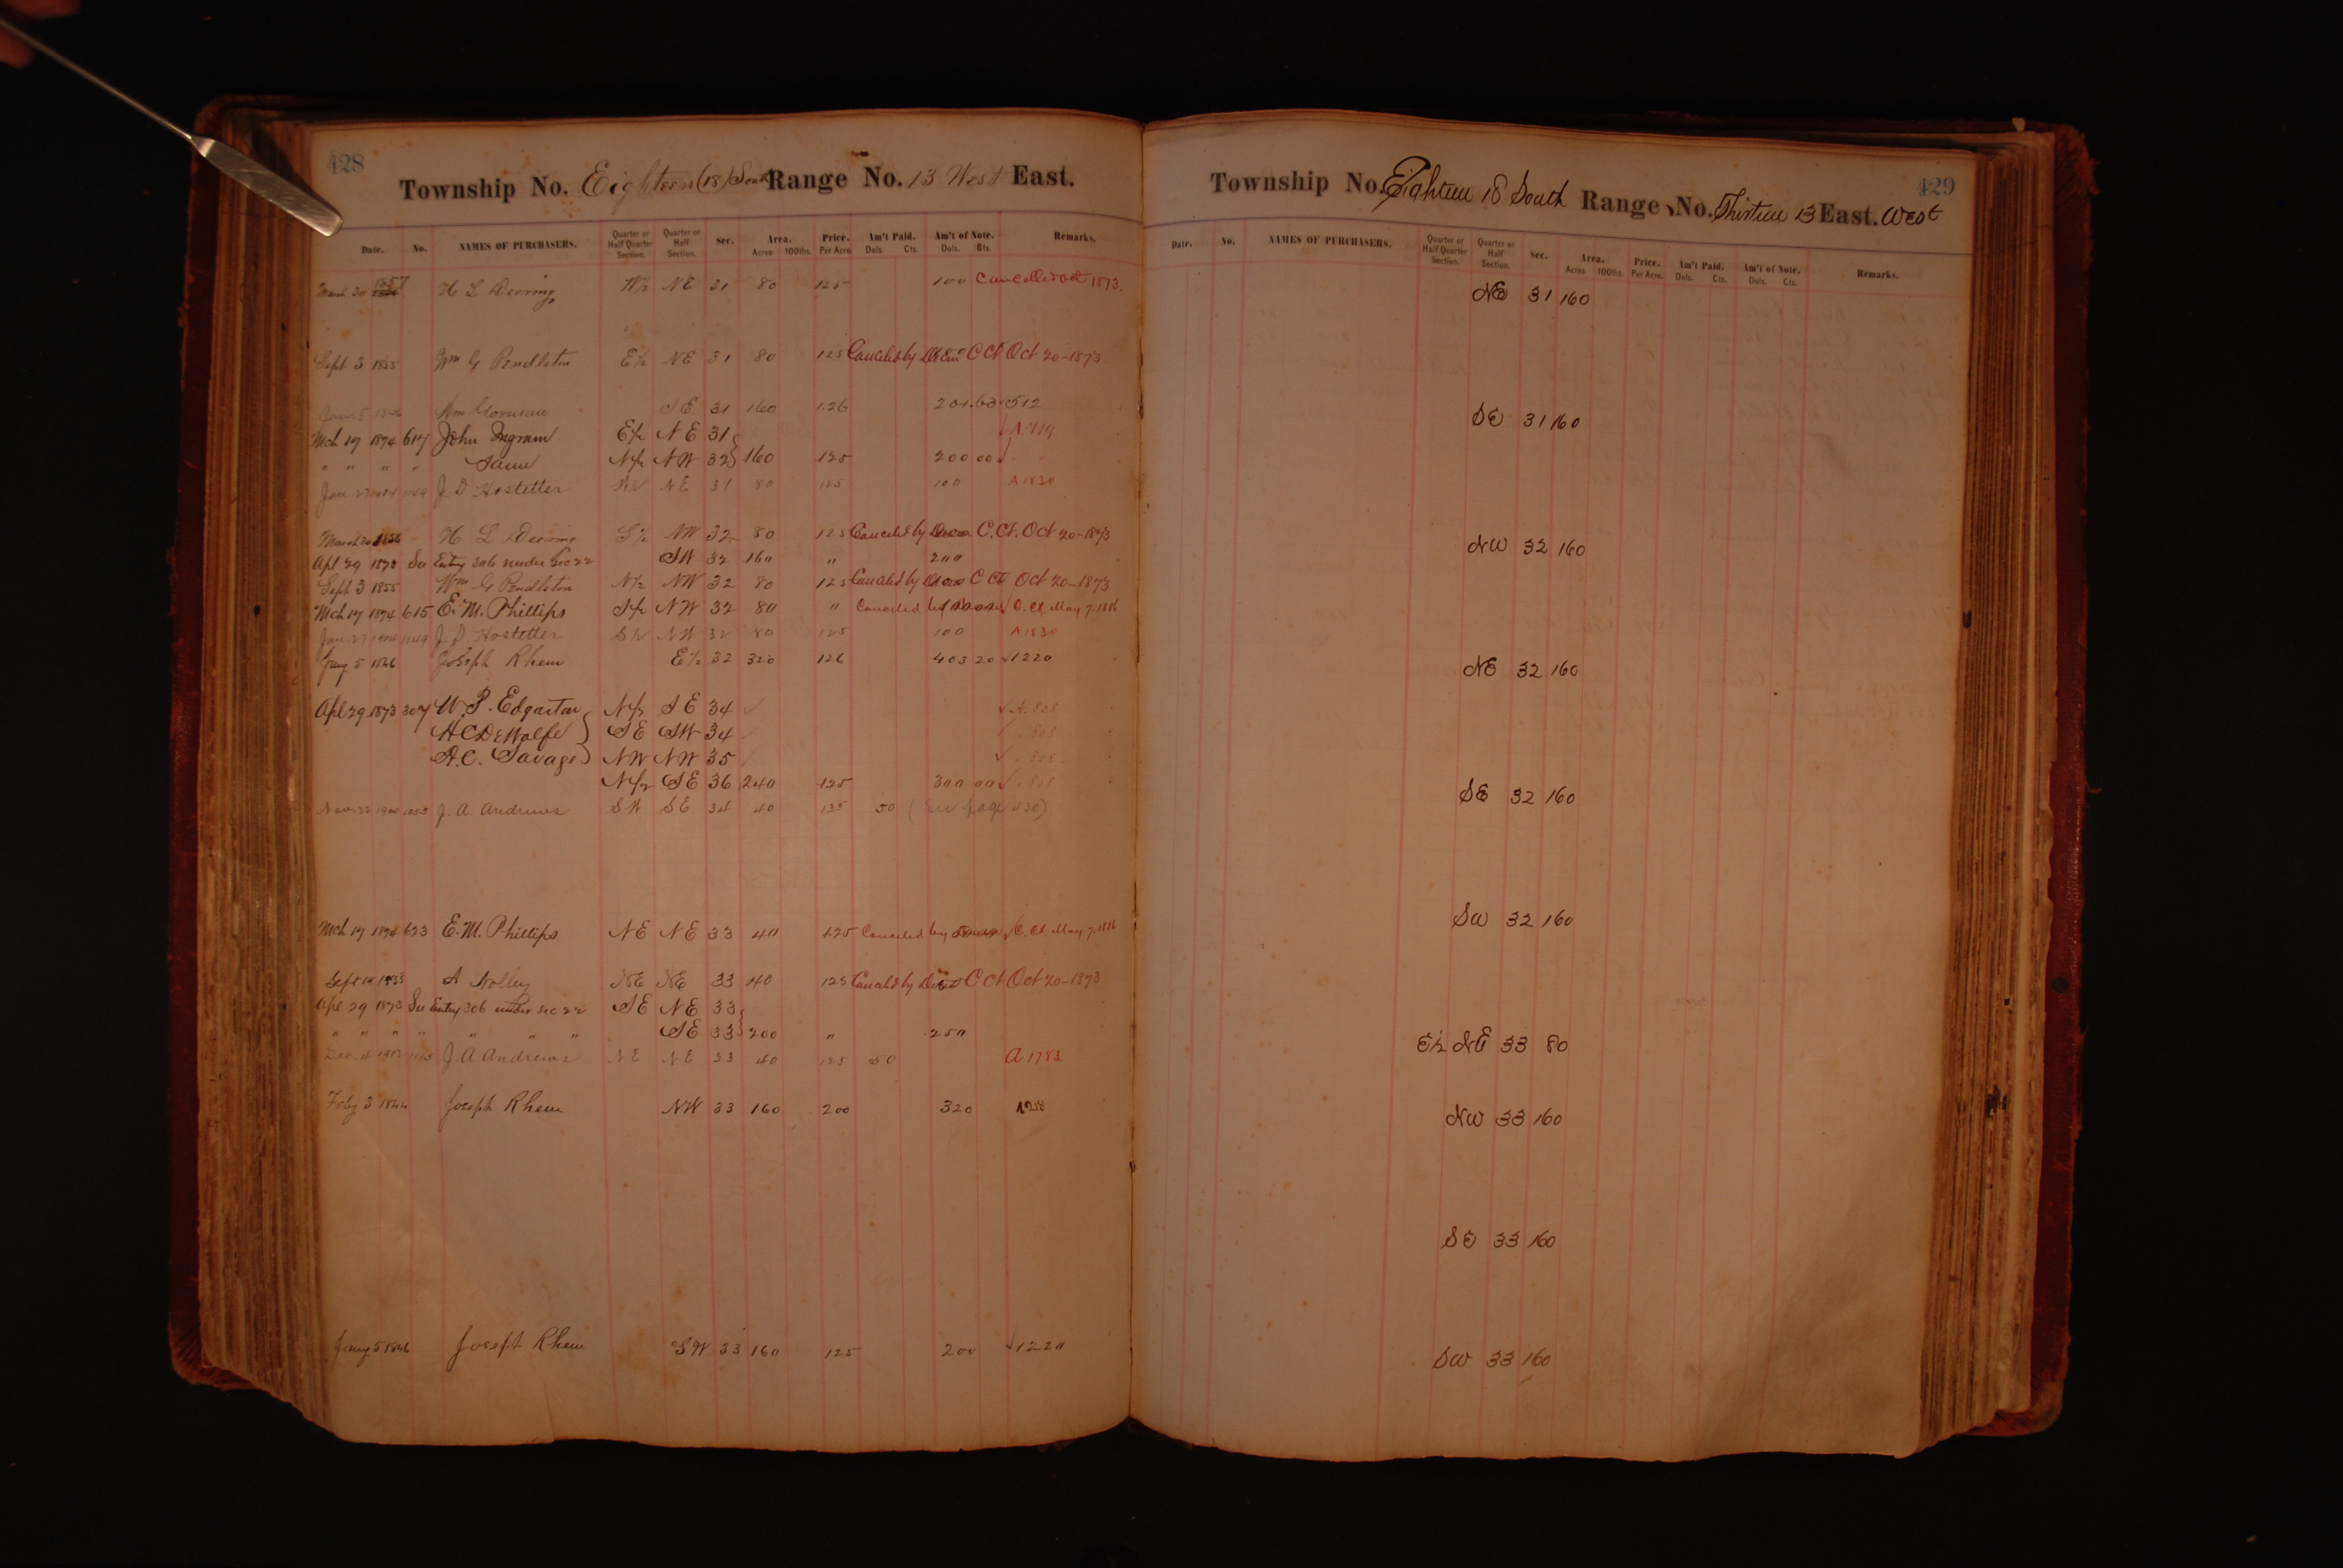 428
Township No. Eighteen (18) South Range No. 13 West East.
Date. No. NAMES OF PURCHASERS. Quarter or Half Quarter Section. Quarter or Half Section. Sec. Area. Acres 100ths. Price. Per Acre Am't Paid. Dols. Cts. Am't of Note. Dols. Cts. Remarks.
March 30 1857 H L Deering W½ NE 31 80 125 100 Cancelled Oct 1873.
Sept 3 1855 Wm G Pendleton E½ NE 31 80 125 Canceled by C Ct Oct 20-1873
SE 31 160 1.26 201.60 512
Mch 17 1874 617 John Ingram E½ NE 31
" " " " Same N½ NW 32 160 125 200 00 "
J. D. Hostetter W½ NE 31 80 125 100 A 1830
H L Deering S½ NW 32 80 125 Canceled by C. Ct. Oct 20-1873
Apl 29 1873 See Entry 306 under Sec 22 SW 32 160 " 200
Sept 3 1855 Wm G Pendleton N½ NW 32 80 125 Canceled by C Ct Oct 20-1873
Mch 17 1874 615 E. M. Phillips S½ NW 32 80 " Canceled by C. Ct. May 7. 1886
J. D. Hostetter S½ NW 32 80 125 100 A 1830
Jany 5 1846 Joseph Rhem E½ 32 320 126 403 20 1220
Apl 29 1873 307 W. P. Edgarton N½ SE 34 A. 808
H C DeWolfe SE SW 34 808
A. C. Savage NW NW 35 808
N½ SE 36 240 125 300 00 808
Nov. 22 1900 1053 J. A. Andrews SW SE 34 40 125 50 (See page 430)
Mch 17 1874 623 E. M. Phillips NE NE 33 40 1.25 Canceled by C. Ct. May 7. 1886
Sept 14 A Nolley NE NE 33 40 125 Canceled by C Ct Oct 20-1873
Apl 29 1873 See Entry 306 under Sec 22 SE NE 33
" " " " " " " SE 33 200 " 250
J. A. Andrews NE NE 33 40 125 50 A 1782
Feby 3 1844 Joseph Rhem NW 33 160 200 320 1218
Jany 5 1846 Joseph Rhem SW 33 160 125 200 1220
429
Township No. Eighteen 18 South Range No. Thirteen 13 East. West
Date. No. NAMES OF PURCHASERS. Quarter or Half Quarter Section. Quarter or Half Section. Sec. Area. Acres 100ths. Price. Per Acre. Am't Paid. Dols. Cts. Am't of Note. Dols. Cts. Remarks.
NE 31 160
SE 31 160
NW 32 160
NE 32 160
SE 32 160
SW 32 160
E½ NE 33 80
NW 33 160
SE 33 160
SW 33 160